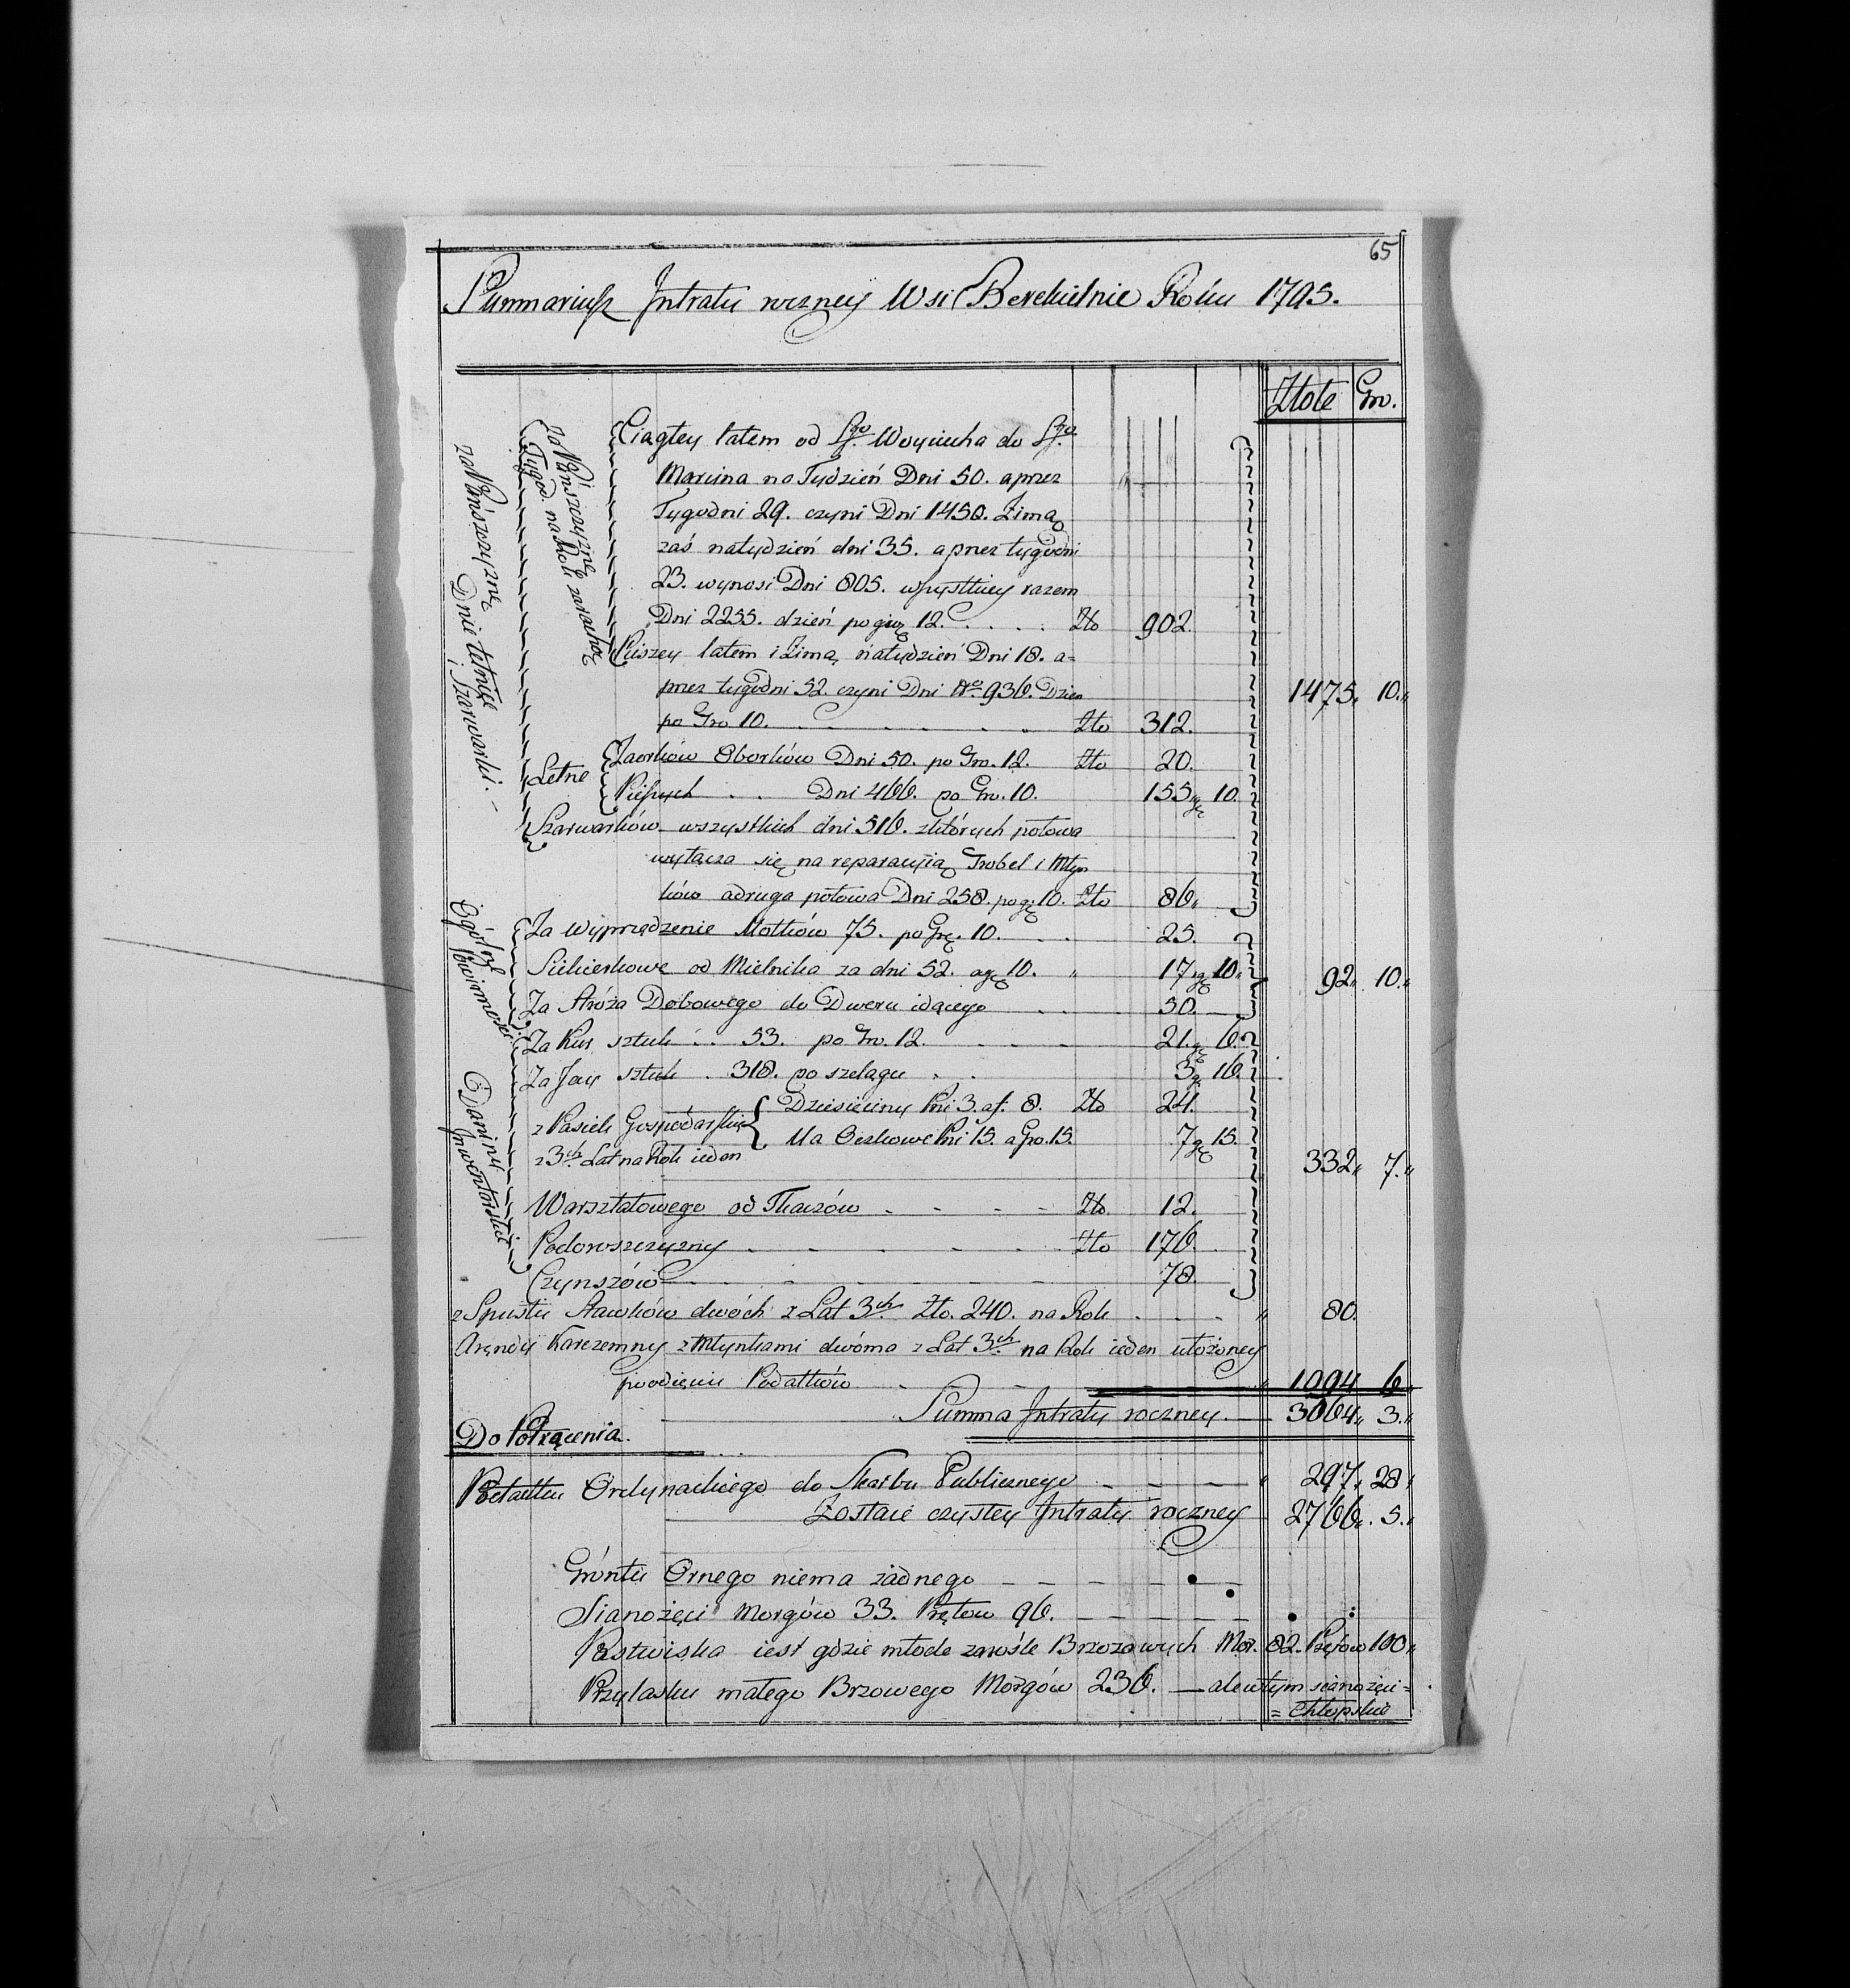 65
Summariusz Intraty roczney Wsi Berekietnie Roku 1795.
Złote Gro.
za Pańszczyznę Dnie letnie i Szarwarki.
za Pańszczyznę Tygod. na Rok zarachoę
Ciągłey latem od Sgo. Woyciecha do Sgo.
Marcina na Tydzień Dni 50. a przez
Tygodni 29. czyni Dni 1450. Zimą
zaś na tydzień dni 35. a przez tygodni
23. wynosi Dni 805. wszystkiey razem
Dni 2255. dzień po grę 12. . . . . Zło 902.
Pieszey latem i Zimą na tydzień Dni 18. a=
przez tygodni 52. czyni Dni No. 936. Dzien
1475. 10.
po Gro 10. . . . . . Złto 312.
Letne
Zaorków Oborków Dni 50. po Gro. 12. Złto 20.
Pieszych . . Dni 466. po Gro. 10. 155 gę 10.
Szarwarków wszystkich dni 516. z których połowa
wytącza się na reparacyią Grobel i Młyn
ków a druga połowa Dni 258. po gę 10. Złto 86.
Ogólne Powinności
Za wyprzędzenie Motków 75. po Grę. 10. . . 25.
Siekierkowe od Mielnika za dni 52. a gę 10. " 17 gę 10.
92. 10.
Za Stróża Dobowego do Dworu idącego . . 50.
Daniny Inwentarskie
Za Kur sztuk . . 53. po Gro. 12. . . . 21. gę 6.
Za Jay sztuk . 318. po szelągu . . 3 gę 16.
z Pasiek Gospodarskich
z 3ch. Lat na Rok ieden
Dziesieciny Pni 3. a f. 8. Złto 24.
Ma Oczkowe Pni 15. a Gro. 15. 7 gę 15.
332. 7.
Warsztatowego od Tkaczów - - - - Złto. 12.
Podoroszczyzny - - - - - Złto 176.
Czynszów - - - - 78.
z Spustu Stawków dwóch z Lat 3ch Złto. 240. na Rok . . . . " 80.
Arendy Karczemney z Młynkami dwóma z Lat 3ch. na Rok ieden ułożoney
po odięciu Podatków - - - 1094 6
Summa Intraty roczney. 3064. 3.
Do Potrącenia.
Podatku Ordynackiego do Skarbu Publicznego - - - - 297. 28
Zostaie czystey Intraty roczney 2766. 5.
Gróntu Ornego niema żadnego - - - -
Sianożęci Morgów 33. Prętow 96. - - - - -
Pastwiska iest gdzie młode zarośle Brzozowych Mor. 82. Prętow 100
Przylasku małego Brzowego Morgów 236. — ale w tym sianożęci=
= Chłopskie